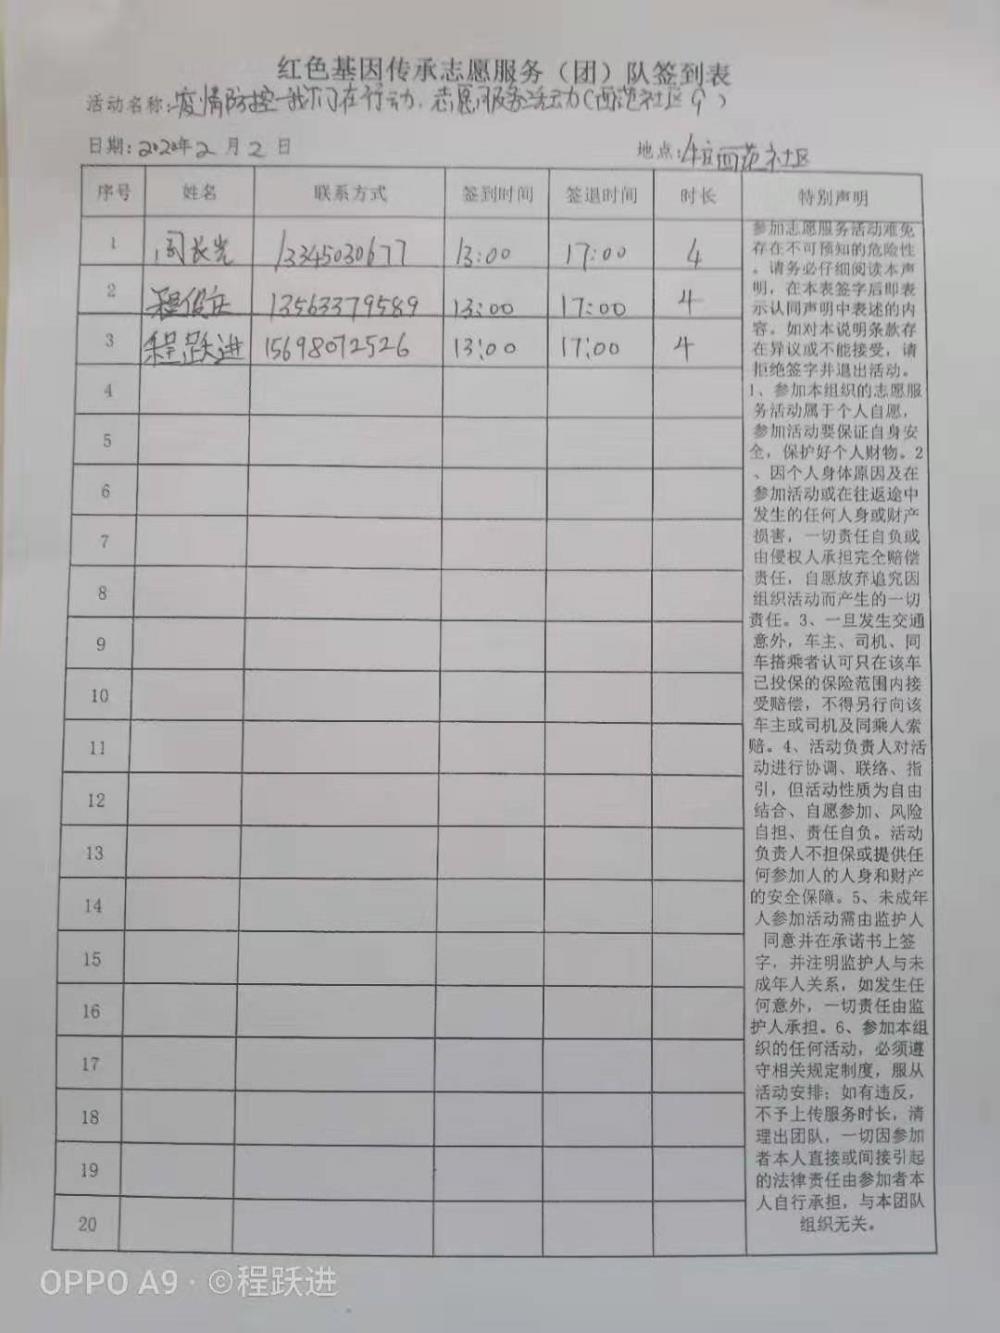 红色基因传承志愿服务（团）队签到表
活动名称:疫情防控-我们在行动,志愿服务活动(西范社区)
日期:2020年2月2日 地点:西范社区
序号 姓名 联系方式 签到时间 签退时间 时长 特别声明
1 周长光 13345030677 13:00 17:00 4
2 程 13563379589 13:00 17:00 4
3 程跃进 15698072526 13:00 17:00 4
4
5
6
7
8
9
10
11
12
13
14
15
16
17
18
19
20
参加志愿服务活动难免
存在不可预知的危险性
。请务必仔细阅读本声
明，在本表签字后即表
示认同声明中表述的内
容。如对本说明条款存
在异议或不能接受，请
拒绝签字并退出活动。
1、参加本组织的志愿服
务活动属于个人自愿，
参加活动要保证自身安
全，保护好个人财物。2
、因个人身体原因及在
参加活动或在往返途中
发生的任何人身或财产
损害，一切责任自负或
由侵权人承担完全赔偿
责任，自愿放弃追究因
组织活动而产生的一切
责任。3、一旦发生交通
意外，车主、司机、同
车搭乘者认可只在该车
已投保的保险范围内接
受赔偿，不得另行向该
车主或司机及同乘人索
赔。4、活动负责人对活
动进行协调、联络、指
引，但活动性质为自由
结合、自愿参加、风险
自担、责任自负。活动
负责人不担保或提供任
何参加人的人身和财产
的安全保障。5、未成年
人参加活动需由监护人
同意并在承诺书上签
字，并注明监护人与未
成年人关系，如发生任
何意外，一切责任由监
护人承担。6、参加本组
织的任何活动，必须遵
守相关规定制度，服从
活动安排；如有违反，
不予上传服务时长，清
理出团队，一切因参加
者本人直接或间接引起
的法律责任由参加者本
人自行承担，与本团队
组织无关。
OPPO A9 · ©程跃进